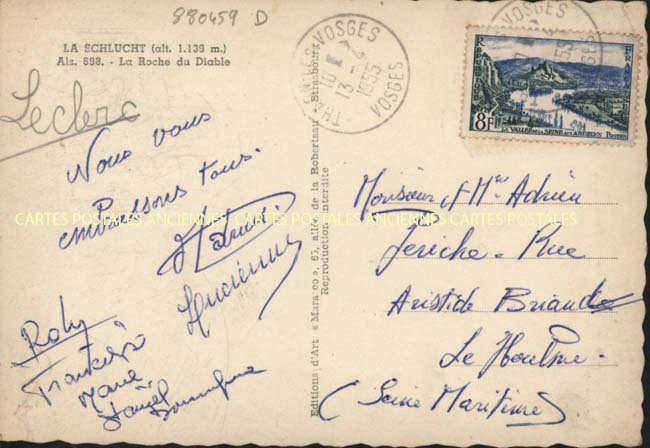 880459 D
LA SCHLUCHT (alt. 1.139 m.)
Als. 698. - La Roche du Diable
Leclerc
Nous vous
embrassons tous.
Lucienne
Roby
Françoise
Daniel
Dominique
Editions d'Art « Mara co », 65, allée de la Robertsau - Strasbourg
Reproduction interdite
VOSGES
13 -
1955
VOSGES
REPUBLIQUE FRANÇAISE
8F
LA VALLÉE DE LA SEINE AUX ANDELYS POSTES
Monsieur et Me Adrien
Jeriche - Rue
Aristide Briand
Le Houlme.
(Seine Maritime)
CARTES POSTALES ANCIENNES CARTES POSTALES ANCIENNES CARTES POSTALES